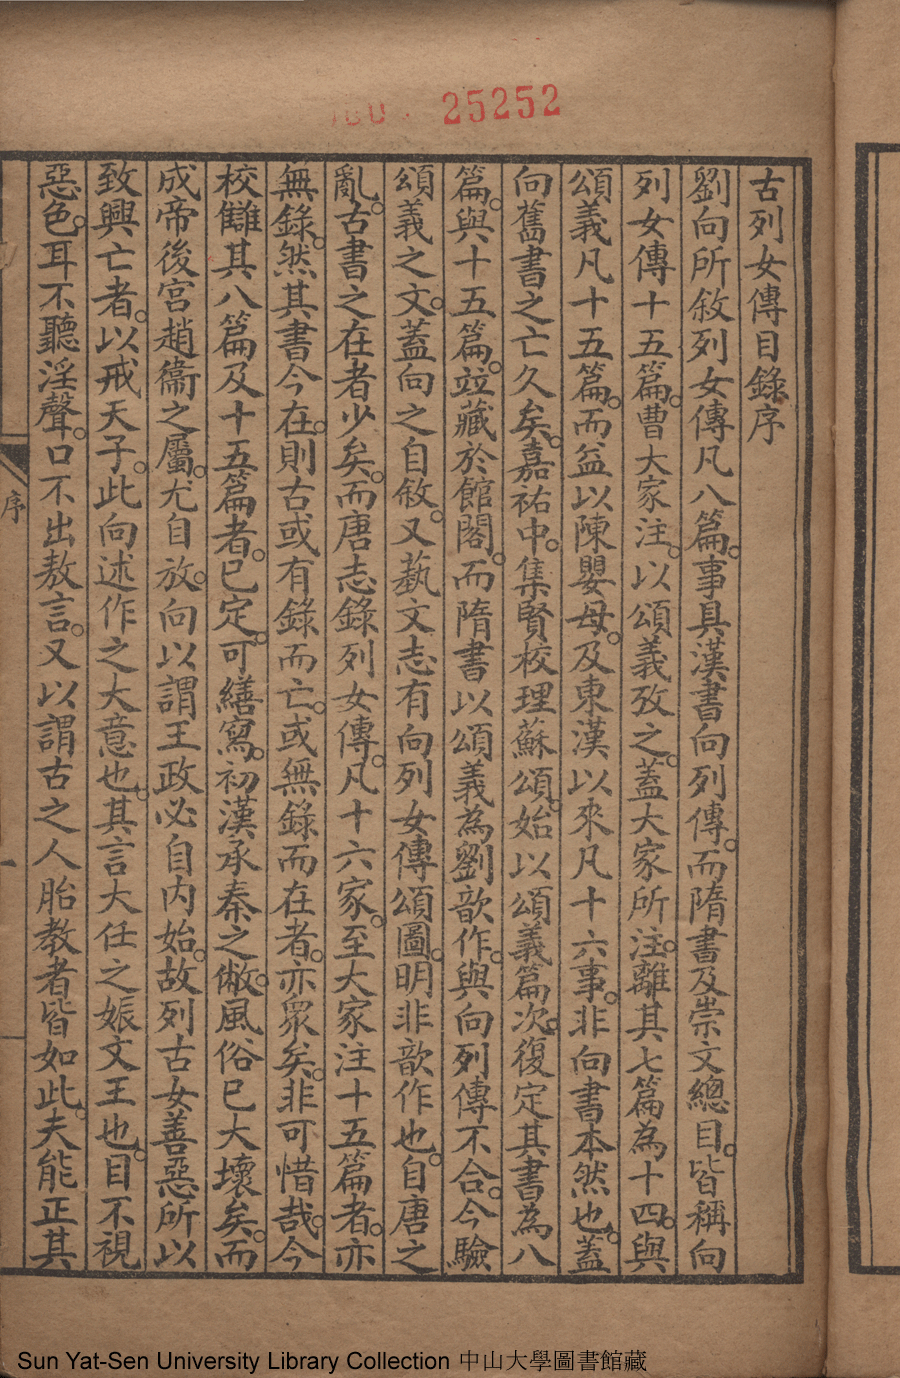 25252
古列女傳目錄序
劉向所敘列女傳凡八篇。事具漢書向列傳。而隋書及崇文總目。皆稱向
列女傳十五篇。曹大家注。以頌義攷之。蓋大家所注。離其七篇為十四。與
頌義凡十五篇。而益以陳嬰母。及東漢以來凡十六事。非向書本然也。蓋
向舊書之亡久矣。嘉祐中。集賢校理蘇頌。始以頌義篇次。復定其書為八
篇。與十五篇。竝藏於館閣。而隋書以頌義為劉歆作。與向列傳不合。今驗
頌義之文。蓋向之自敘。又藝文志有向列女傳頌圖。明非歆作也。自唐之
亂。古書之在者少矣。而唐志錄列女傳。凡十六家。至大家注十五篇者。亦
無錄。然其書今在。則古或有錄而亡。或無錄而在者。亦眾矣。非可惜哉。今
校讎其八篇及十五篇者。已定。可繕寫。初漢承秦之敝。風俗已大壞矣。而
成帝後宮趙衞之屬。尤自放。向以謂王政必自內始。故列古女善惡所以
致興亡者。以戒天子。此向述作之大意也。其言大任之娠文王也。目不視
惡色。耳不聽淫聲。口不出敖言。又以謂古之人胎教者皆如此。夫能正其
序
Sun Yat-Sen University Library Collection 中山大學圖書館藏